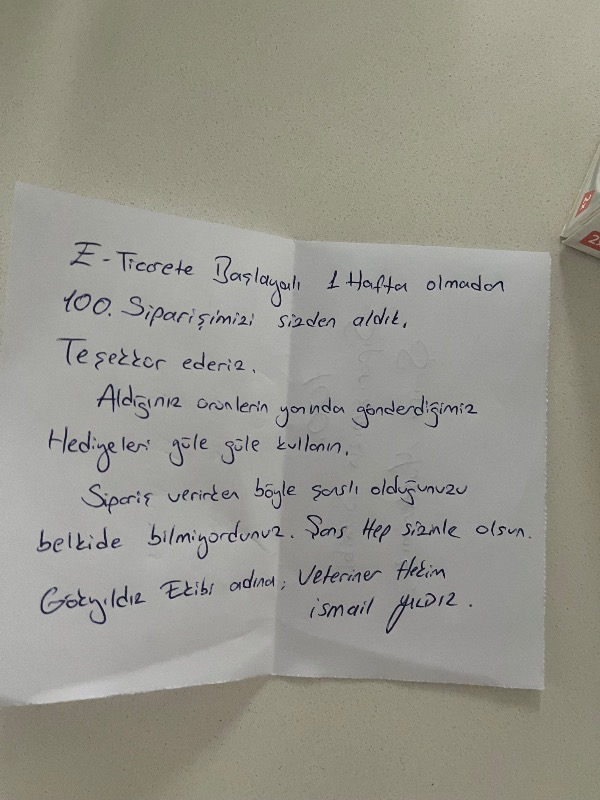 E-Ticarete Başlayalı 1 Hafta olmadan
100. Siparişimizi sizden aldık.
Teşekkür ederiz.
Aldığınız ürünlerin yanında gönderdiğimiz
Hediyeleri güle güle kullanın.
Sipariş verirken böyle şanslı olduğunuzu
belkide bilmiyordunuz. Şans Hep sizinle olsun.
Gökyıldız Ekibi adına; Veteriner Hekim
ismail YILDIZ.